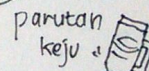 parutan
keju